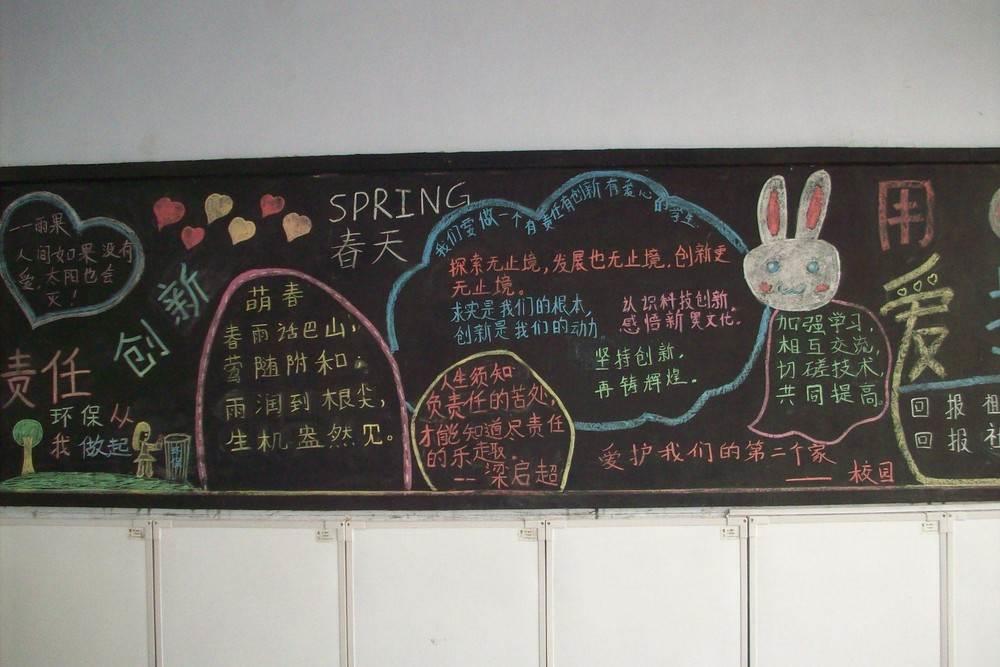 一雨果
人间如果没有
爱,太阳也会
灭!
责任
创新
环保从
我做起
环保
SPRING
春天
萌春
春雨话巴山,
莺随附和;
雨润到根尖,
生机盎然见。
我们要做一个有责任有创新有爱心的学生
探索无止境,发展也无止境.创新更
无止境。
求实是我们的根本,
创新是我们的动力
认识科技创新.
感悟新異文化.
坚持创新.
再铸辉煌.
人生须知
负责任的苦处,
才能知道尽责任
的乐趣.
--梁启超
加强学习,
相互交流,
切磋技术,
共同提高
爱护我们的第二个家
——校园
用
爱
回报祖
回报